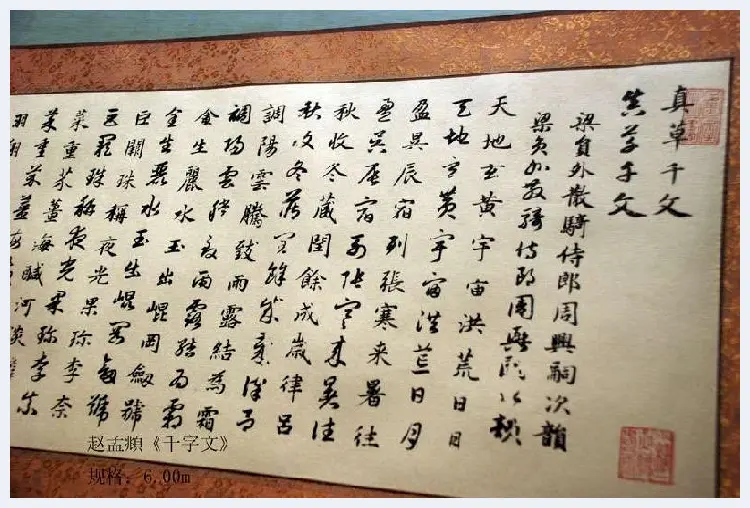 真草千文
真草千文
梁員外散騎侍郎周興嗣次韻
梁員外散騎侍郎周興嗣次韻
天地玄黃宇宙洪荒日月
天地玄黃宇宙洪荒日月
盈昃辰宿列張寒来暑往
盈昃辰宿列張寒来暑往
秋收冬藏閏餘成歲律呂
秋收冬藏閏餘成歲律呂
調陽雲騰致雨露結為霜
調陽雲騰致雨露結為霜
金生麗水玉出崐岡劒號
金生麗水玉出崐岡劒號
巨闕珠稱夜光果珍李奈
巨闕珠稱夜光果珍李奈
菜重芥薑海醎河淡
菜重芥薑
羽翔
赵孟頫《千字文》
规格：6.00m